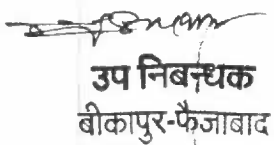 उप निबन्धक
बीकापुर-फैजाबाद